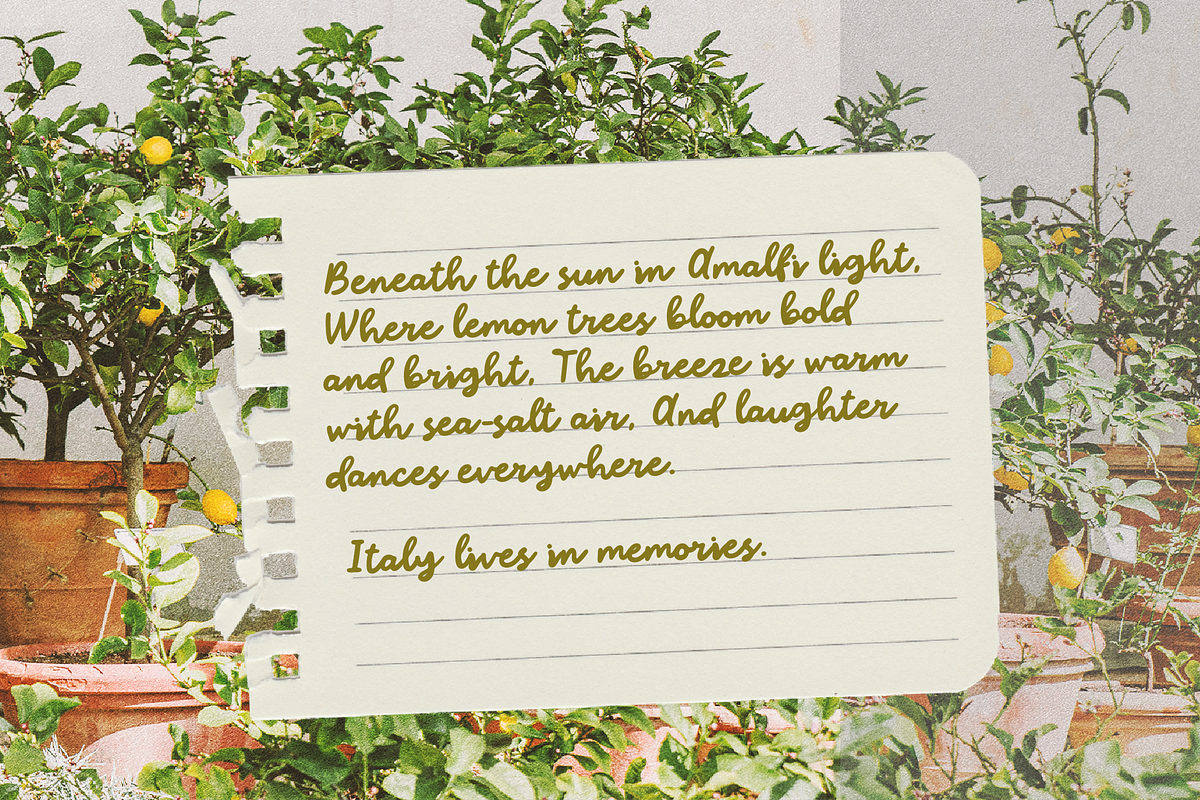 Beneath the sun in Amalfi light,
Where lemon trees bloom bold
and bright, The breeze is warm
with sea-salt air, And laughter
dances everywhere.
Italy lives in memories.